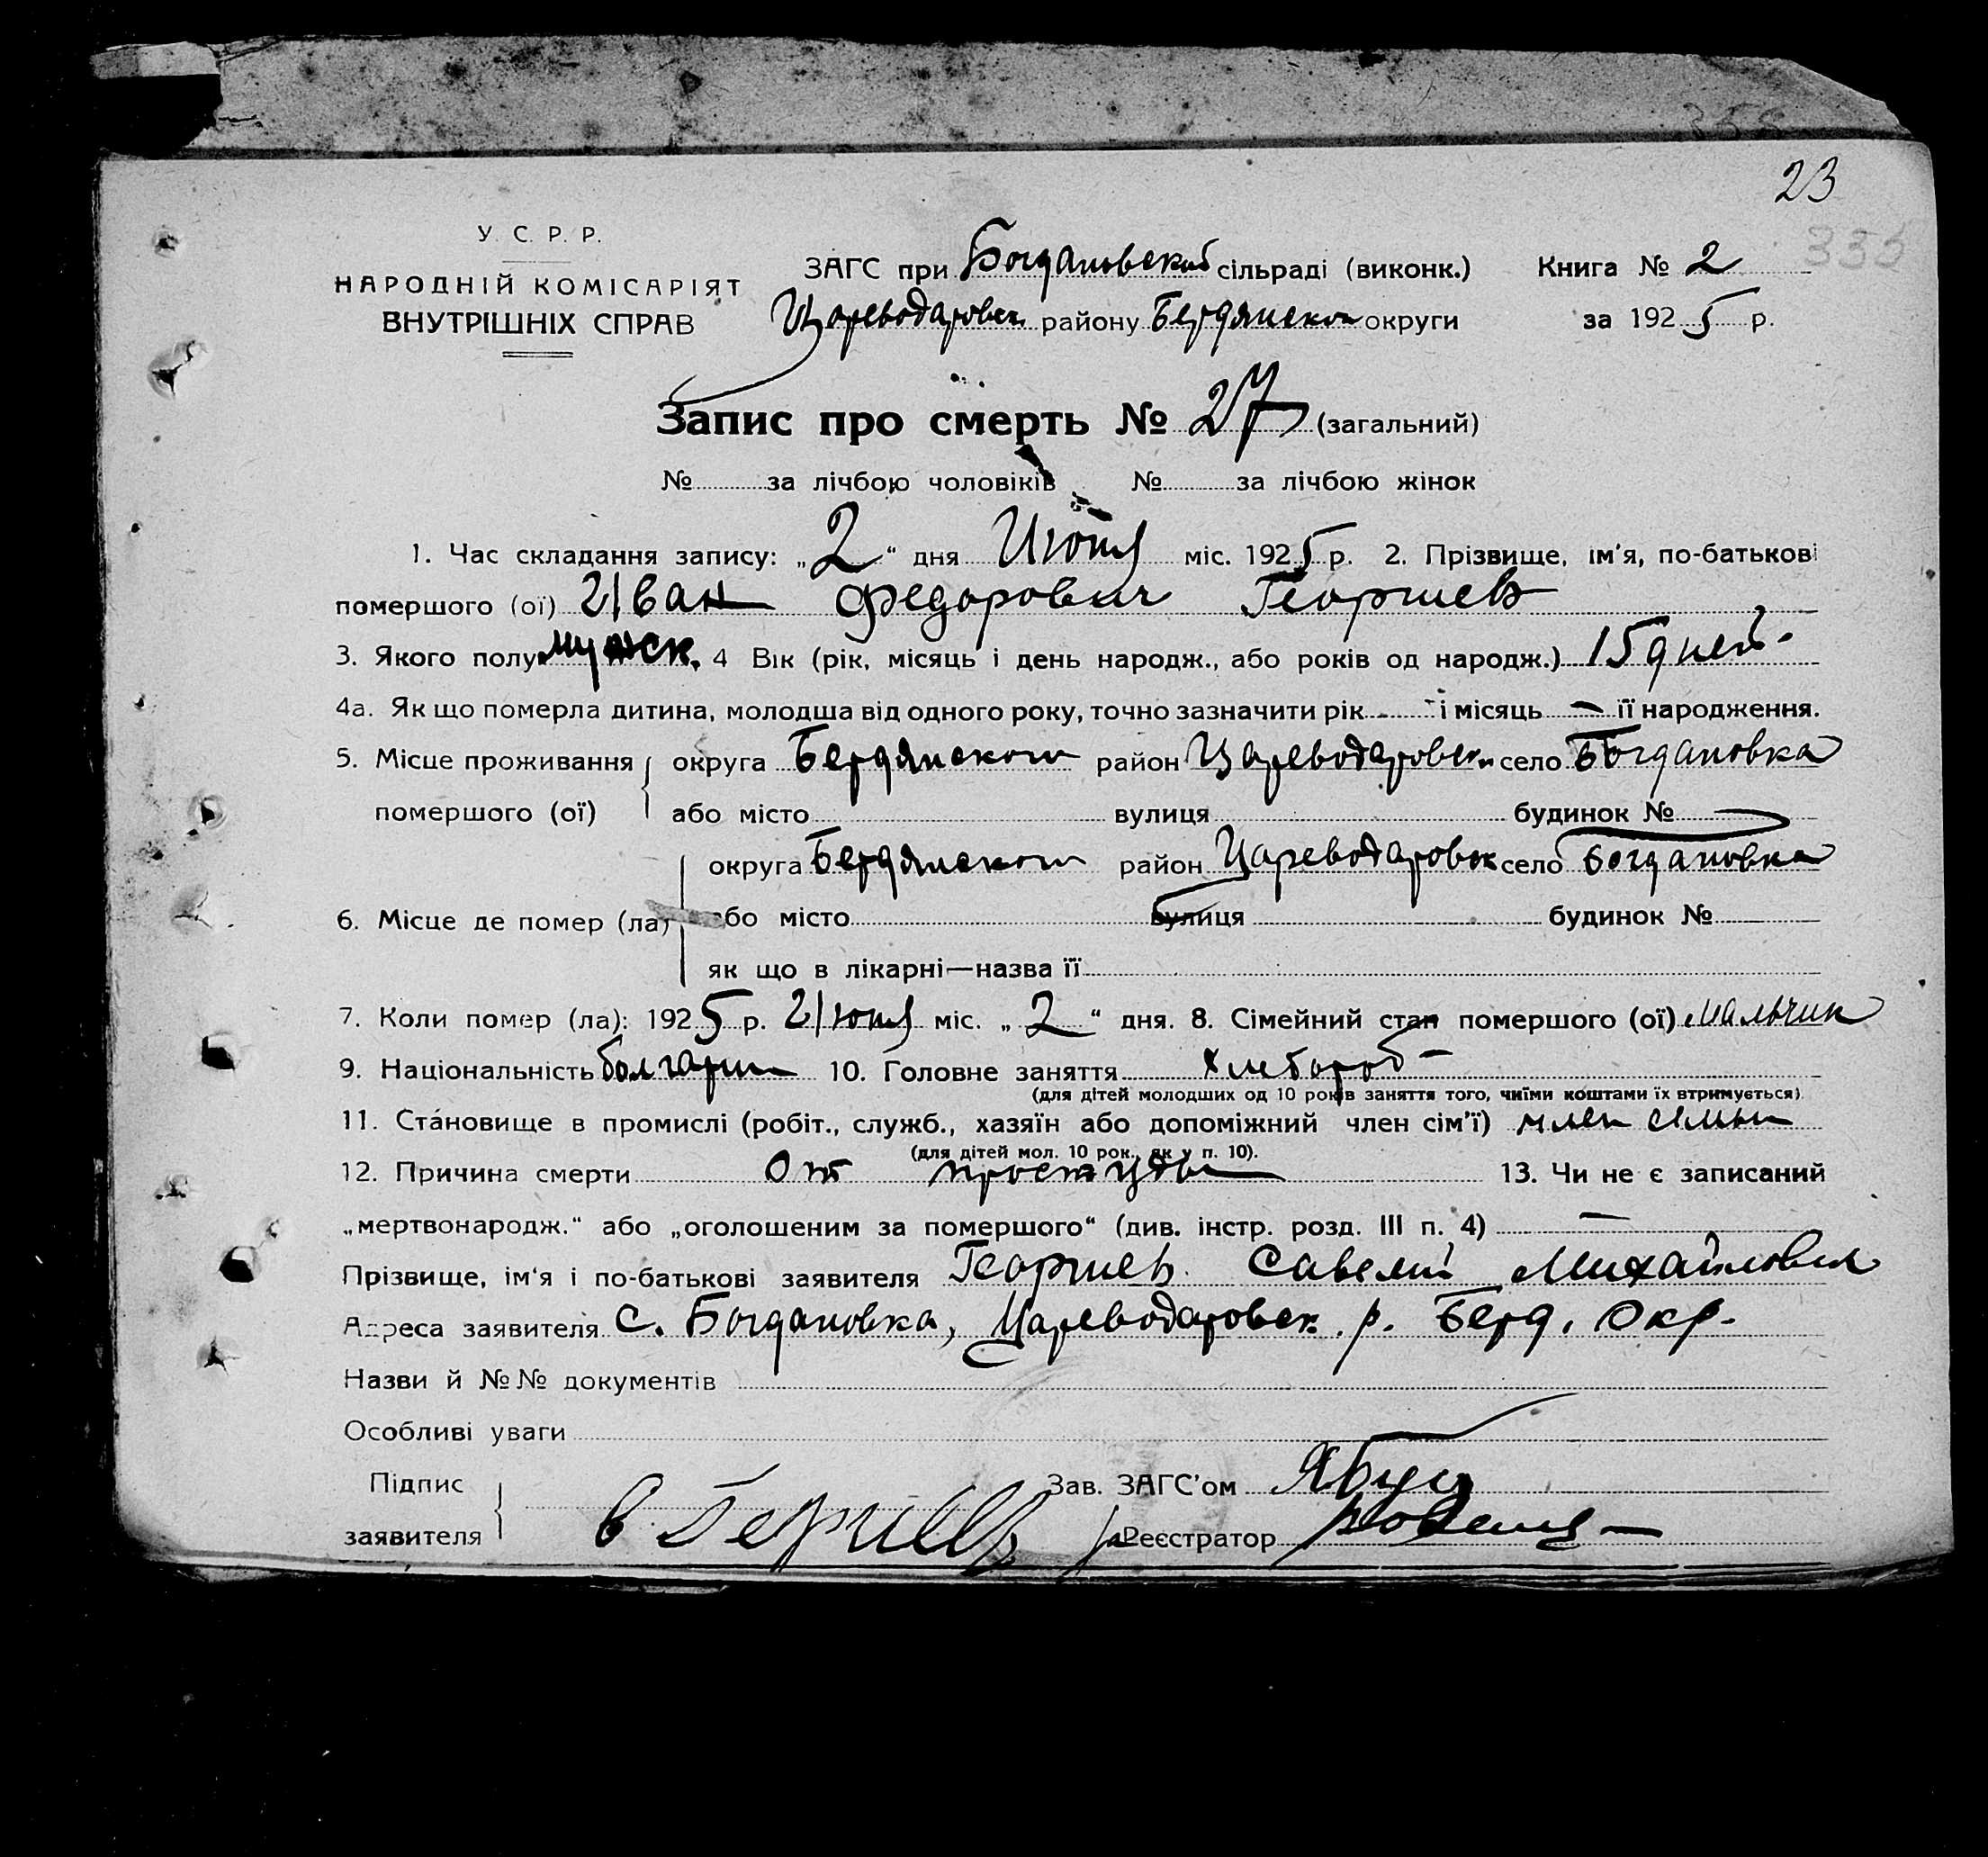 23
335
У. С. Р. Р.
НАРОДНІЙ КОМІСАРІЯТ
ВНУТРІШНІХ СПРАВ
ЗАГС при Богдановской сільраді (виконк.) Книга № 2
Цареводаровск районy Бердянского округи за 1925 р.
Запис про смерть № 27 (загальний)
№ за лічбою чоловіків № за лічбою жінок
1. Час складання запису: „2“ дня Июля міс. 1925 р. 2. Прізвище, ім'я, по-батькові
помершого (ої) Иван Федорович Георгиев
3. Якого полу мужск. 4 Вік (рік, місяць і день народж., або років од народж.) 15 дней
4а. Як що померла дитина, молодша від одного року, точно зазначити рік - і місяць - її народження.
5. Місце проживання округа Бердянского район Цареводаровск село Богдановка
помершого (ої) або місто вулиця будинок №
округа Бердянского район Цареводаровск село Богдановка
6. Місце де помер (ла) або місто вулиця будинок №
як що в лікарні—назва її
7. Коли помер (ла): 1925 р. Июля міс. „2“ дня. 8. Сімейний стан помершого (ої) мальчик
9. Національність болгарин 10. Головне заняття хлебороб
(для дітей молодших од 10 років заняття того, чиїми коштами їх втримується).
11. Стáновище в промислі (робіт., служб., хазяїн або допоміжний член сім'ї) член семьи
(для дітей мол. 10 рок., як у п. 10).
12. Причина смерти От простуды 13. Чи не є записаний
„мертвонародж.“ або „оголошеним за помершого“ (див. інстр. розд. III п. 4) —
Прізвище, ім'я і по-батькові заявителя Георгиев Савелий Михайлович
Адреса заявителя с. Богдановка, Цареводаровск. р. Берд. Окр.
Назви й №№ документів
Особливі уваги
Підпис Зав. ЗАГС'ом
заявителя Реєстратор